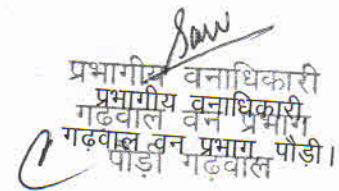 प्रभागीय वनाधिकारी
प्रभागीय वनाधिकारी
गढ़वाल वन प्रभाग
गढ़वाल वन प्रभाग पौड़ी।
पौड़ी गढ़वाल